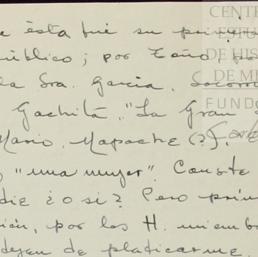 e ésta fué su pri
público; por Toño, por
la Sra. García, Socorro
Gachita, "La Gran
Mario, Mapache (?),
, "una mujer". Conste
die ¿o si? Pero prim
ión, por los H. miemb
dejen de platicarme.
CENT
DE HIS
DE ME
FUND